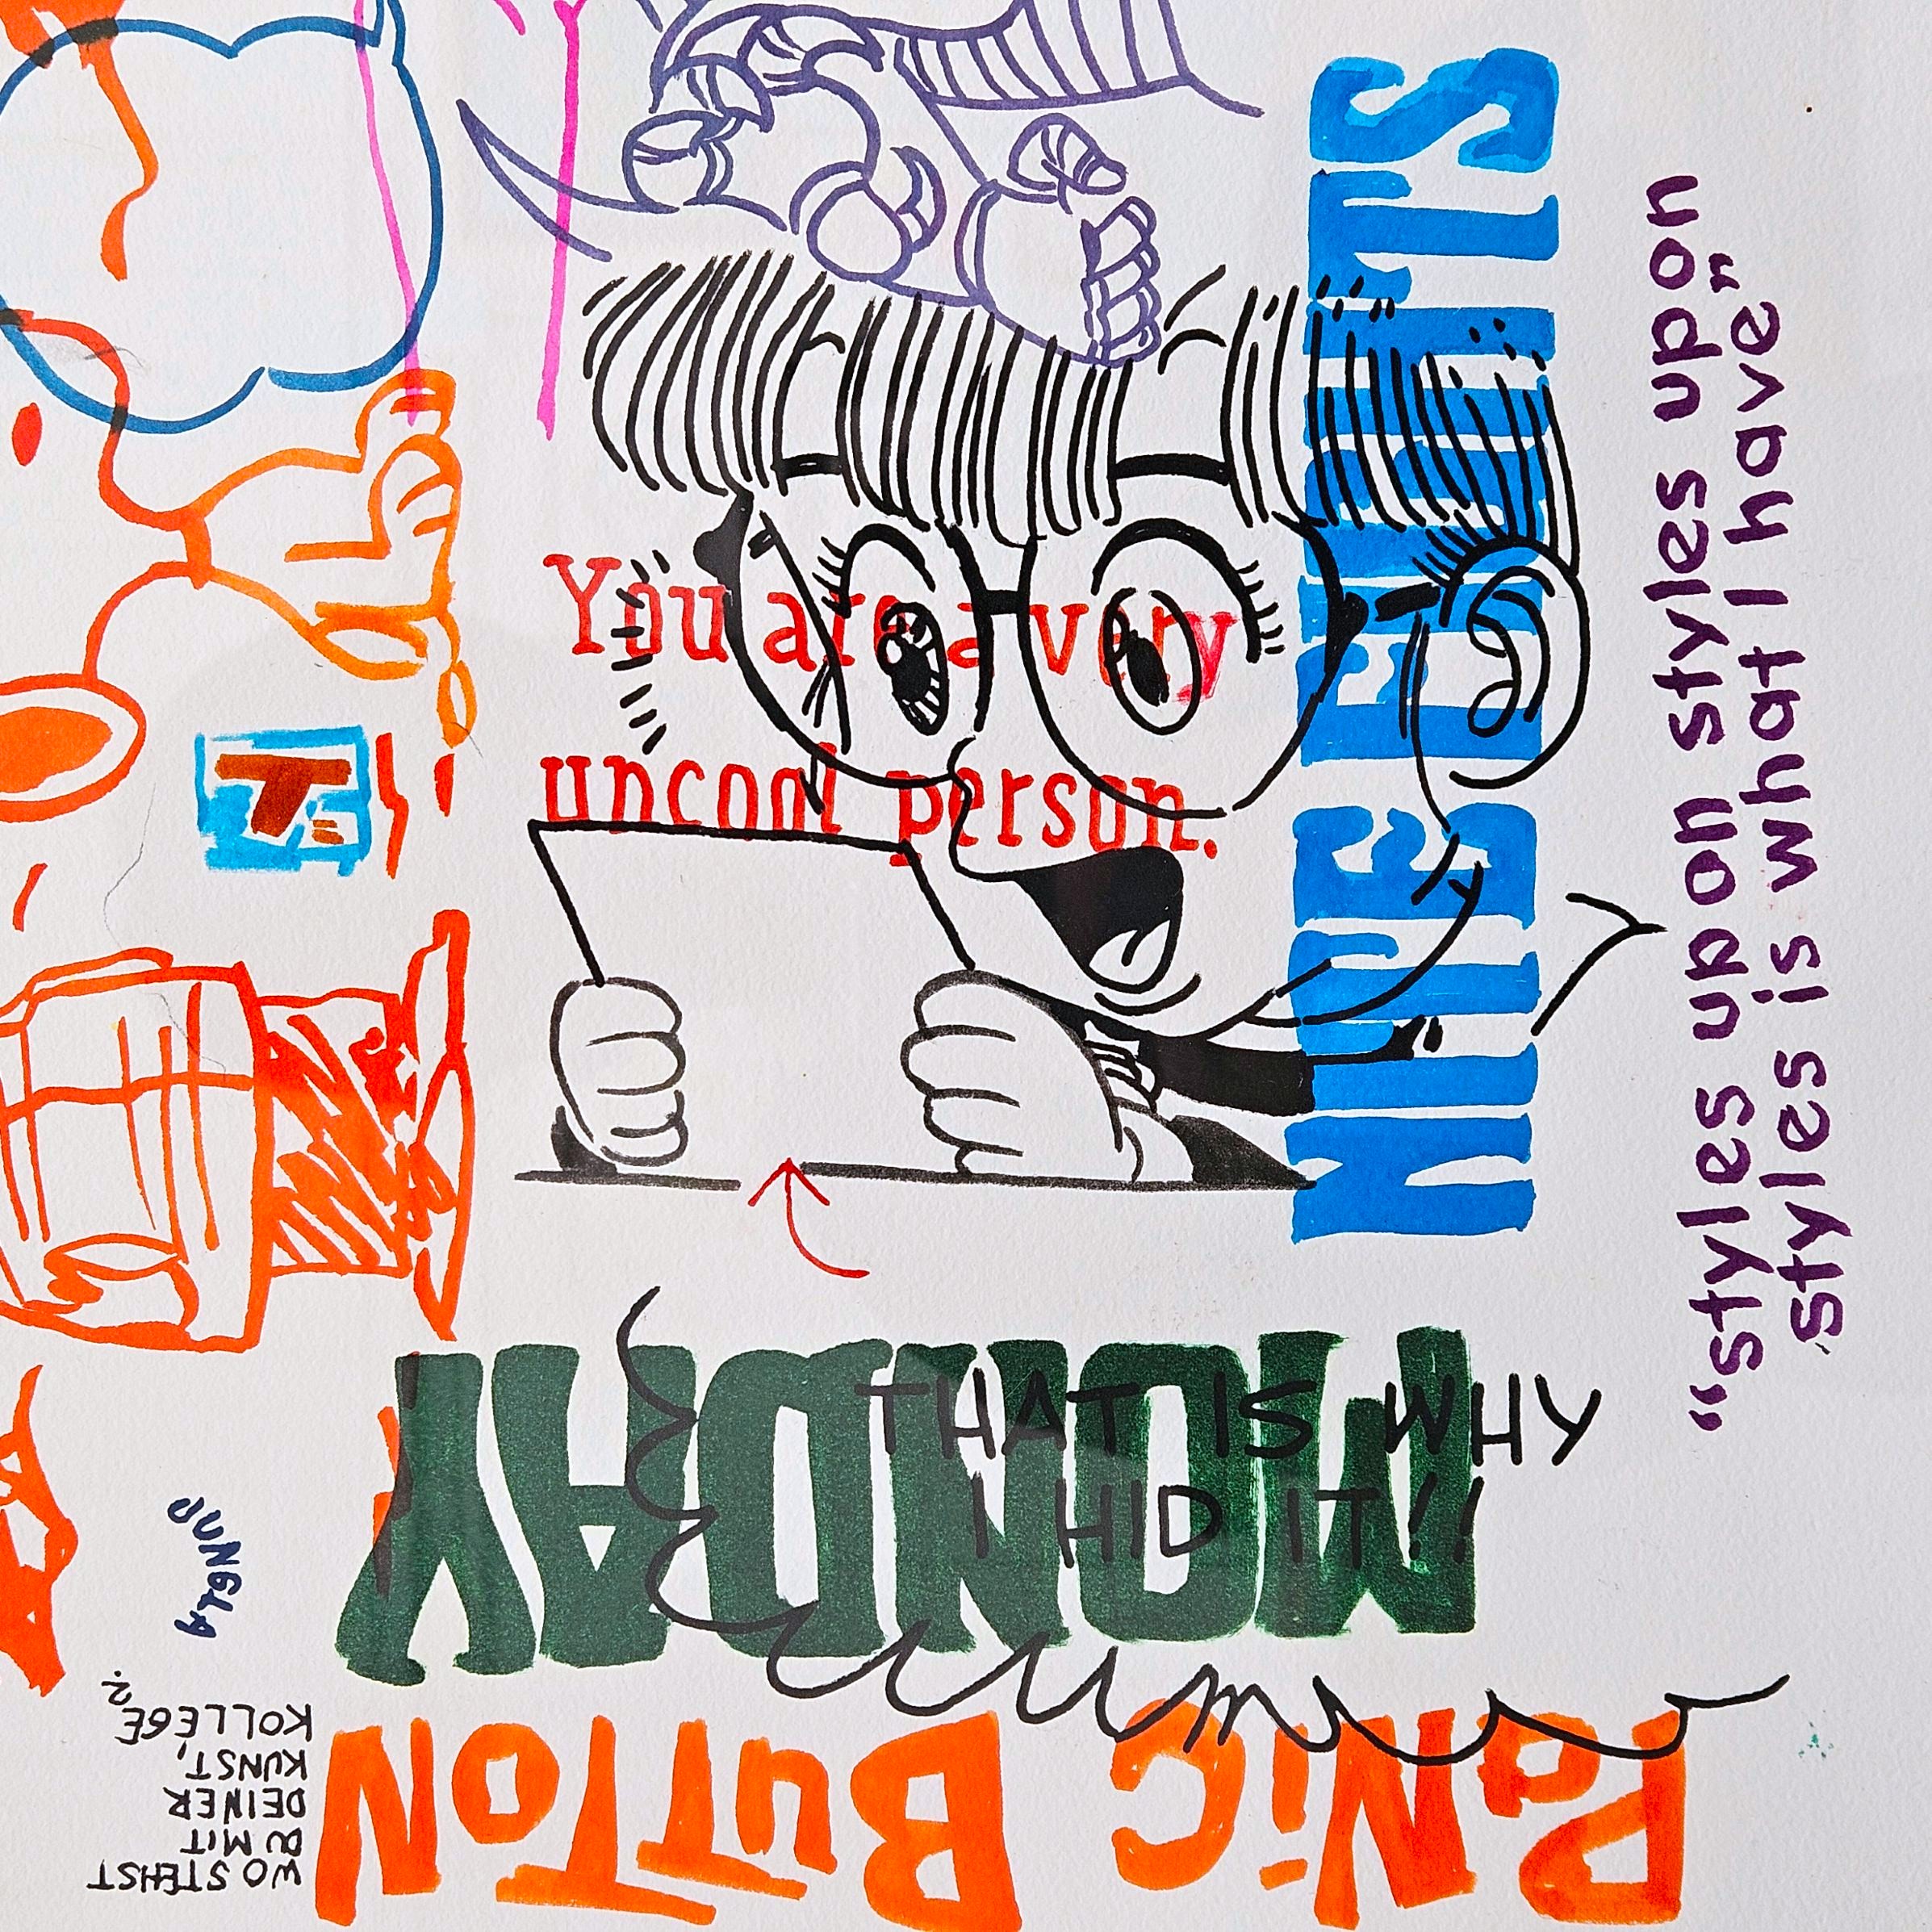 You are a very
uncool person.
NICE
"styles upon styles upon styles upon
styles is what I have"
THAT IS WHY
I HID IT!!
MONDAY
PANiC BUTTON
WO STEHST
DU MIT
DEINER
KUNST,
KOLLEGE?